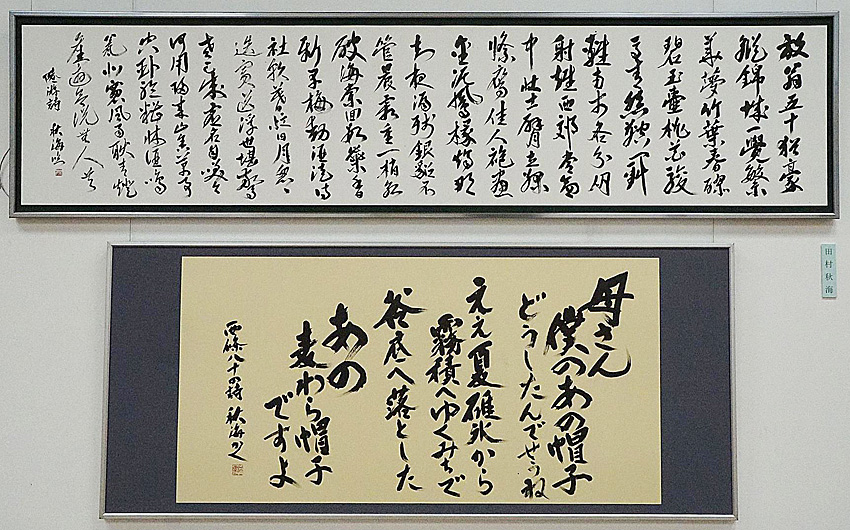 放翁五十猶豪
縱錦城一覺繁
華夢竹葉春醪
碧玉壺桃花駿
馬青絲鞚鬥
雞南市各分朋
射雉西郊常命
中壯士臂立綠
絛鷹佳人袍畫
金泥鳳椽燭那
知夜漏殘銀貂不
管晨霜重一梢紅
破海棠回數蕊香
新早梅動酒徒詩
社朝暮忙日月匆々
迭賓送浮世堪驚
老已成虛名自笑今
何用歸來山舍萬事
空臥聽糟床酒鳴
甕北窗風雨耿青燈
舊遊欲說無人共
陸游詩 秋海
母さん
僕のあの帽子
どうしたんでせうね
ええ夏碓氷から
霧積へゆくみちで
谷底へ落とした
あの
麦わら帽子
ですよ
西條八十の詩 秋海かく
田村秋海